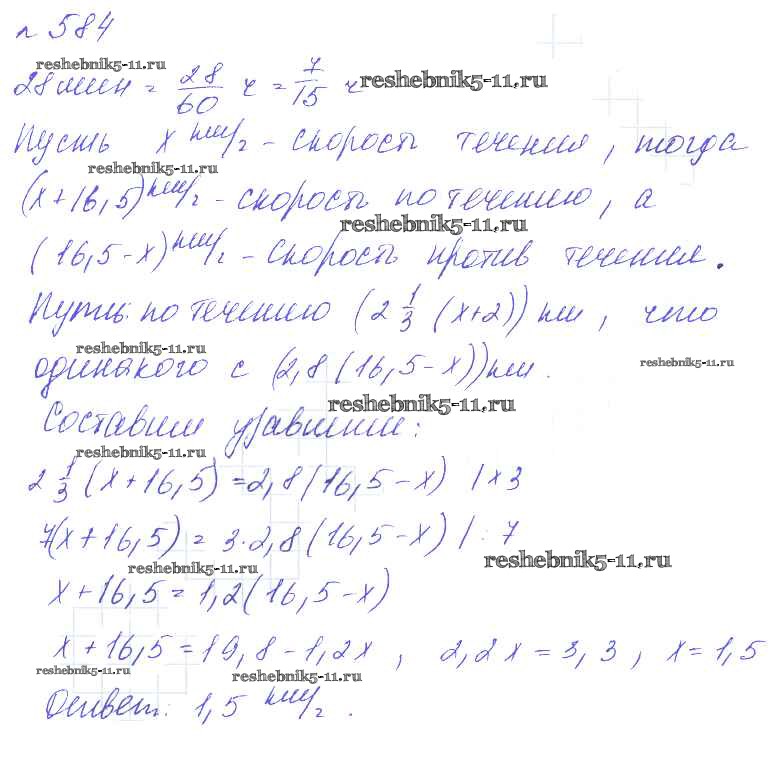 № 584
reshebnik5-11.ru
28 мин = 28/60 ч = 7/15 ч
reshebnik5-11.ru
Пусть x км/ч - скорость течения, тогда
reshebnik5-11.ru
(x+16,5) км/ч - скорость по течению, а
reshebnik5-11.ru
(16,5-x) км/ч - скорость против течения.
Путь по течению (2 1/3 (x+2)) км, что
reshebnik5-11.ru
одинаково с (2,8(16,5-x)) км.
reshebnik5-11.ru
reshebnik5-11.ru
Составим уравнение:
reshebnik5-11.ru
2 1/3 (x+16,5) = 2,8(16,5-x) | x3
7(x+16,5) = 3·2,8(16,5-x) | : 7
reshebnik5-11.ru
reshebnik5-11.ru
x+16,5 = 1,2(16,5-x)
x+16,5 = 19,8-1,2x, 2,2x = 3,3, x = 1,5
reshebnik5-11.ru
reshebnik5-11.ru
Ответ: 1,5 км/ч.